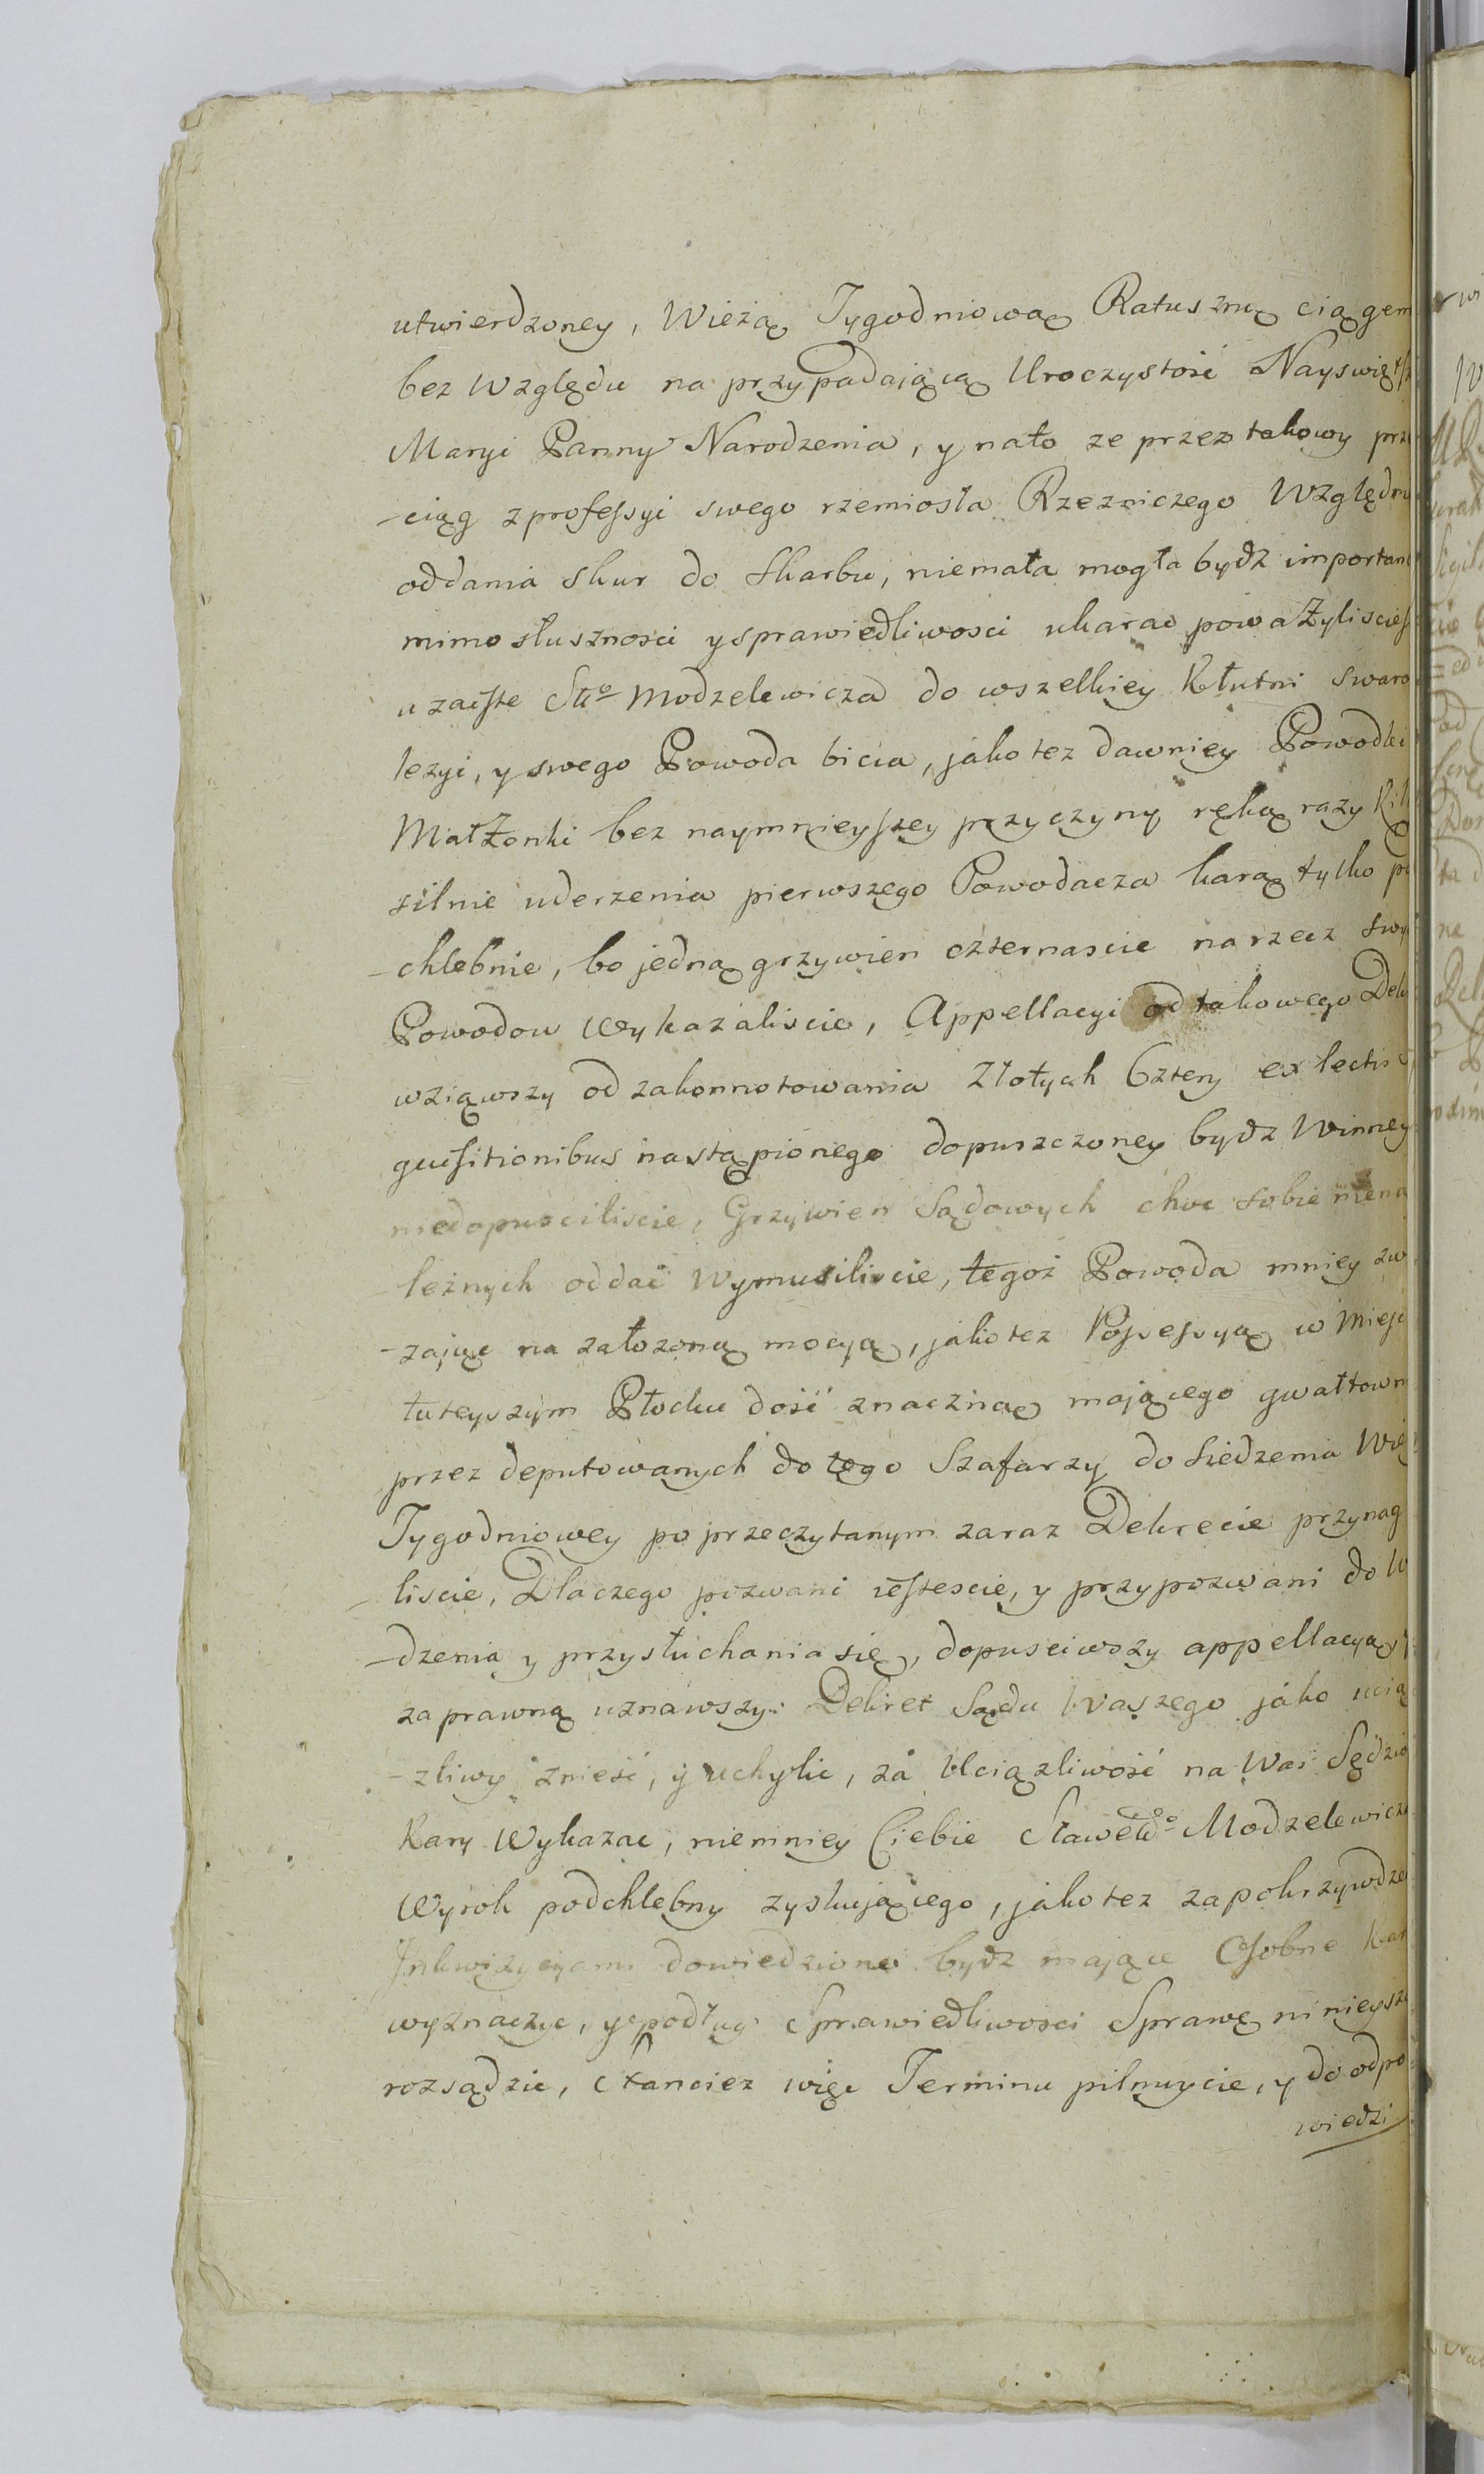 utwierdzoney, Wieżą Tygodniową Ratuszną ciągem
bez Względu na przypadaiącą Uroczystość Nayswięts
Maryi Panny Narodzenia, y nato ze przez takowy prze
-ciąg z professyi swego rzemiosła Rzezniczego Względem
oddania skur do skarbu, niemała mogła bydz importan
mimo słusznosci y sprawiedliwosci ukarac poważyliscie
u zaiste Stto Modzelewicza do wszelkiey Kłutni swaro
lezyi, y swego Powoda bicia, jako tez dawniey Powodki
Małżonki bez naymnieyszey przyczyny ręką razy kil
silnie uderzenia pierwszego Powodacza karą tylko po
-chlebnie, bo jedną grzywien czternascie na rzecz swy
Powodow wykazaliscie, Appellacyi od takowego Dek
wziąwszy od zakonnotowania Złotych Cztery ex lectis
quisitionibus nastąpionego dopuszczoney bydz Winney
niedopusciliscie, Grzywien Sądowych choc sobie niena
leżnych oddać wymusiliscie, tegoż Powoda mniey zw
-zając na załozoną mocyą, jako tez Possessyą w Miejs
tuteyszym Płocku dość znaczną mającego gwałtown
przez deputowanych do tego Szafarzy do siedzenia Wie
Tygodniowey po przeczytanym zaraz Dekrecie przynag
-liscie, Dlaczego pozwani iestescie, y przypozwani do W
-dzenia y przysłuchania się, dopusciwszy appellacyą
za prawną uznawszy: Dekret Sądu Waszego jako ucią
-zliwy znieść, y uchylic, za Uciązliwość na Was Sędzio
Kary Wykazac, niemniey Ciebie Sławetgo Modzelewicza
Wyrok podchlebny zyskującego, jako tez za pokrzywdze
Inkwizycyami dowiedzione bydz mające Osobne kar
wyznaczyc, y podług Sprawiedliwosci Sprawę ninieysz
rozsądzic, Stanciez więc Terminu pilnuycie, y do odpo
wiedzi